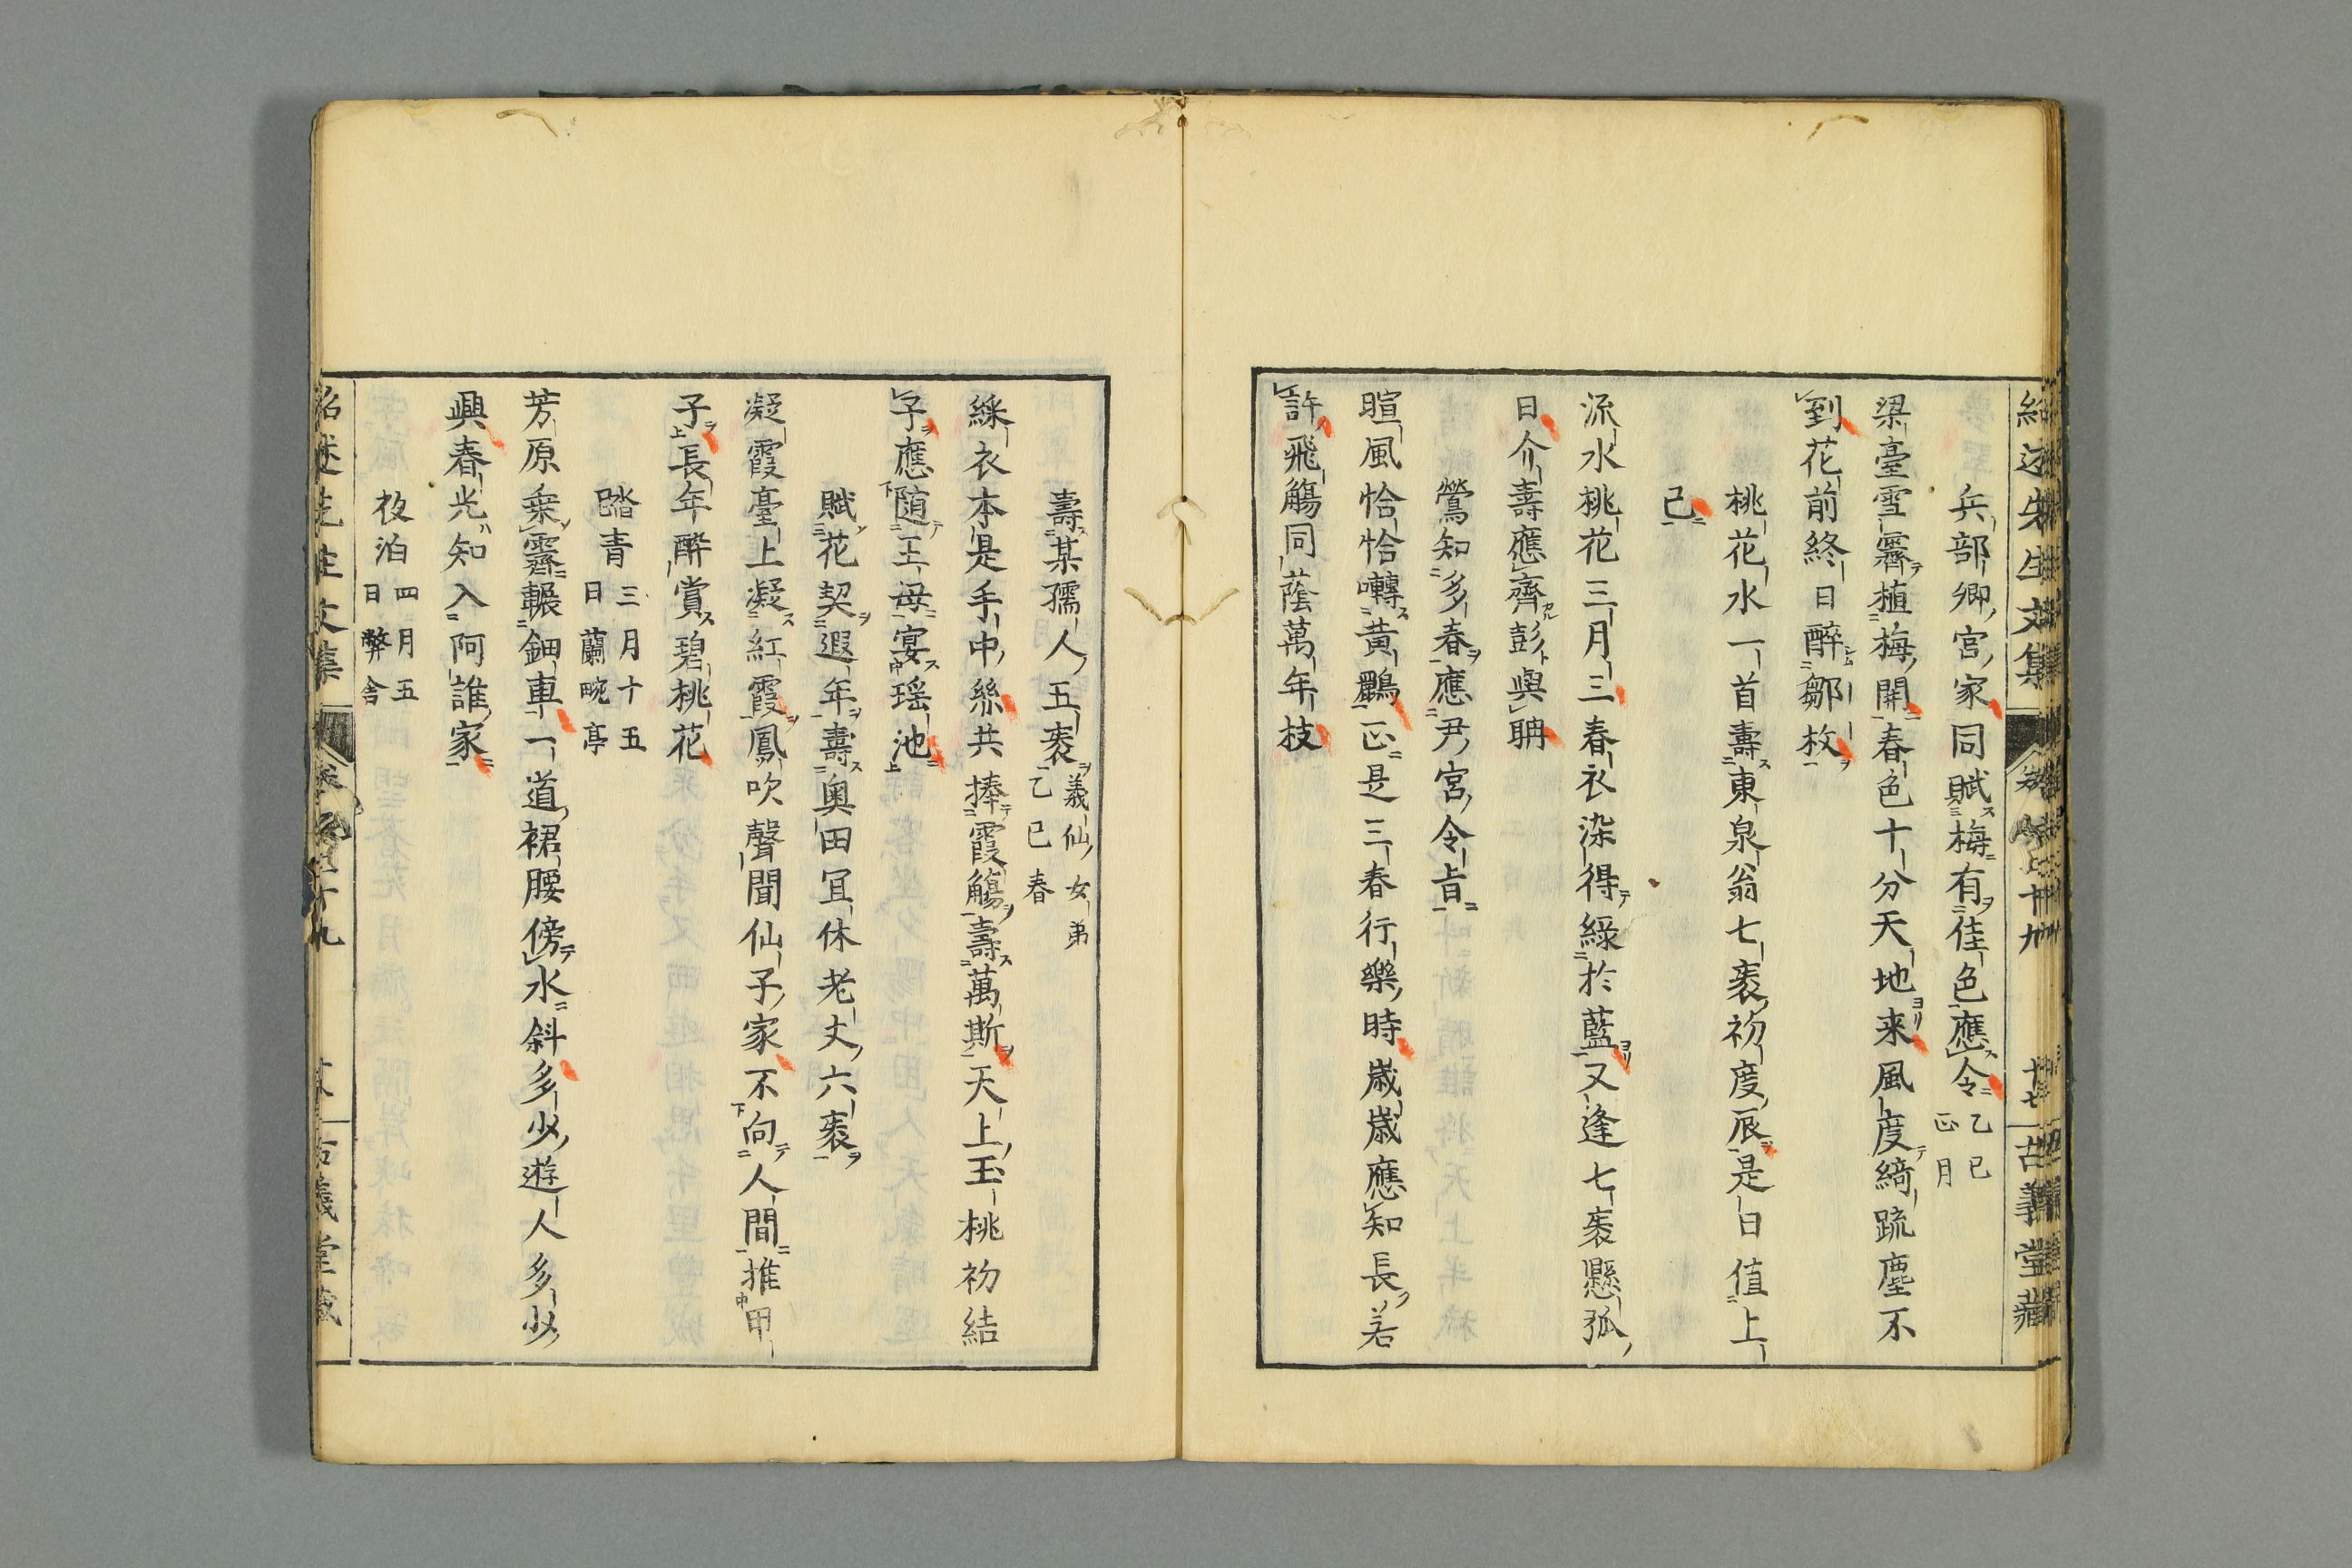 紹述先生文集 卷之二十九 十七 古義堂藏
兵部卿宮家同賦梅有佳色應令 乙巳正月
梁臺雪霽植梅開春色十分天地来風度綺疏塵不
到花前終日醉鄒枚
桃花水一首壽東泉翁七袠初度辰是日值上
巳
流水桃花三月三春衣染得綠於藍又逢七袠懸弧
日介壽應齊彭與聃
鶯知多春應尹宮令旨
暄風恰恰囀黃鸝正是三春行樂時歲歲應知長若
許飛觴同蔭萬年枝
壽某孺人五袠 義仙女弟乙巳春
綵衣本是手中絲共捧霞觴壽萬斯天上玉桃初結
子應随王母宴瑶池
賦花契遐年壽奧田冝休老丈六袠
凝霞臺上凝紅霞鳳吹聲聞仙子家不向人間推甲
子長年醉賞碧桃花
踏青 三月十五日蘭畹亭
芳原乗霽輾鈿車一道裙腰傍水斜多少遊人多少
興春光知入阿誰家
夜泊 四月五日弊舍
紹述先生文集 卷之二十九 古義堂藏